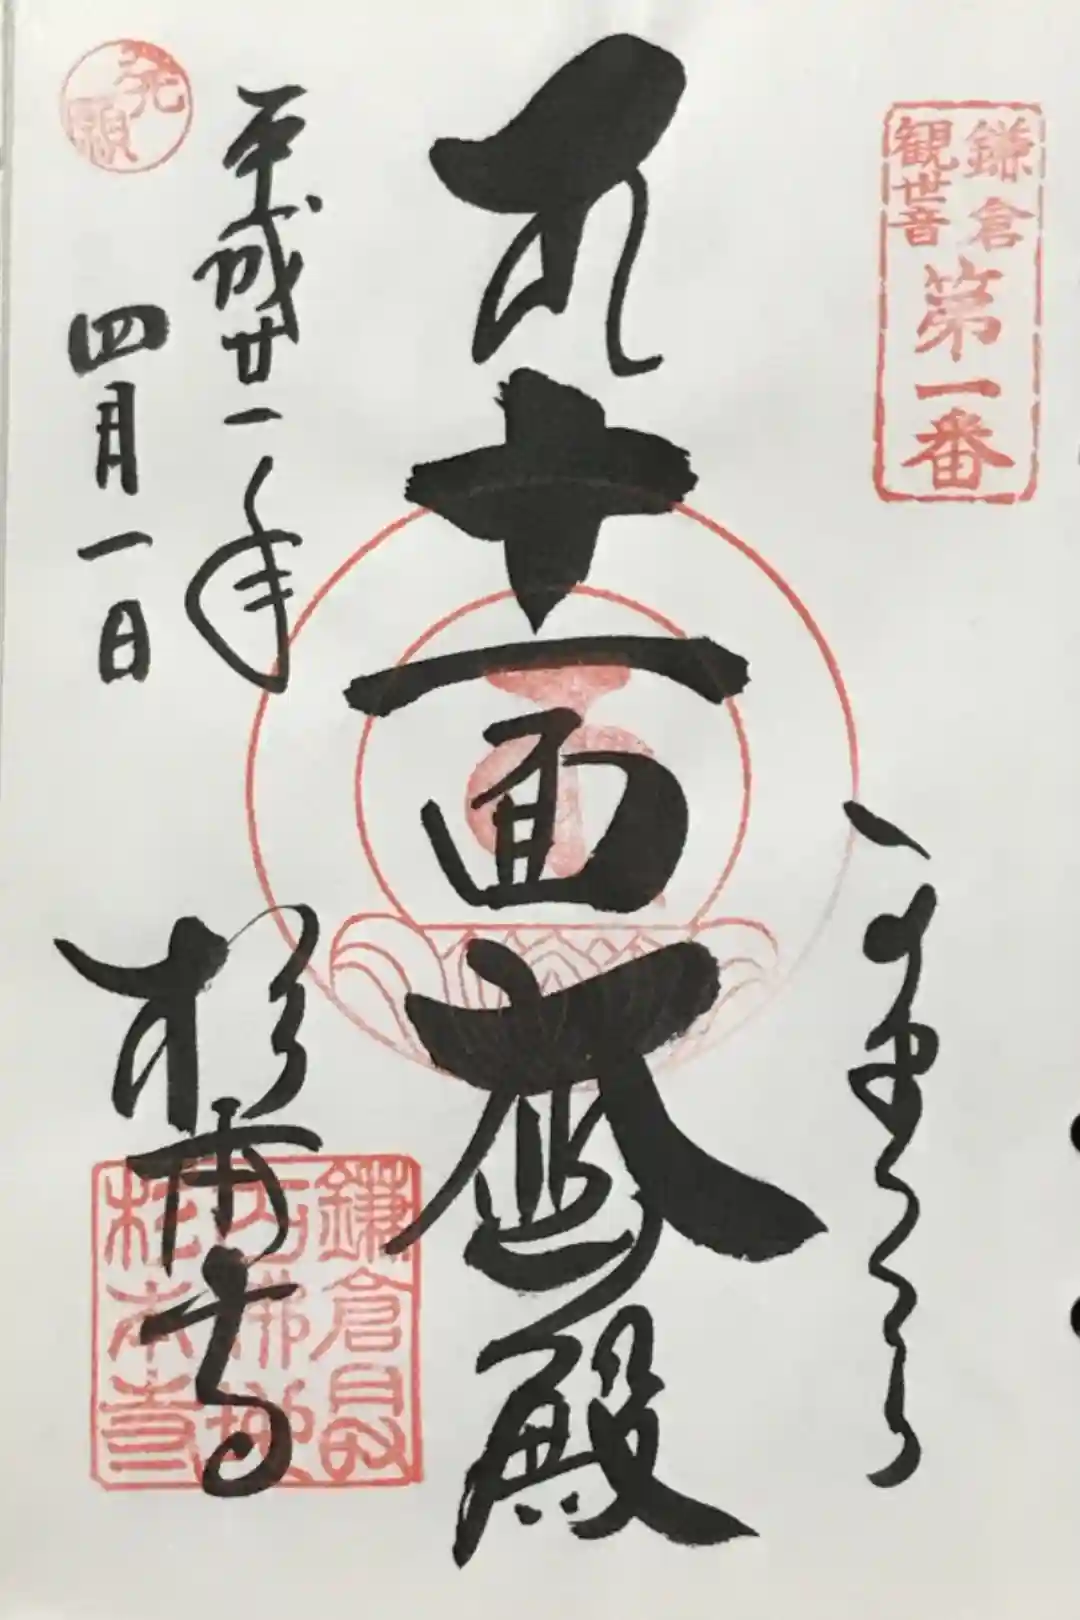 鎌倉
観世音
第一番
十一面大悲殿
発願
平成廿一年
四月一日
杉本寺
鎌倉最
古佛地
杉本寺